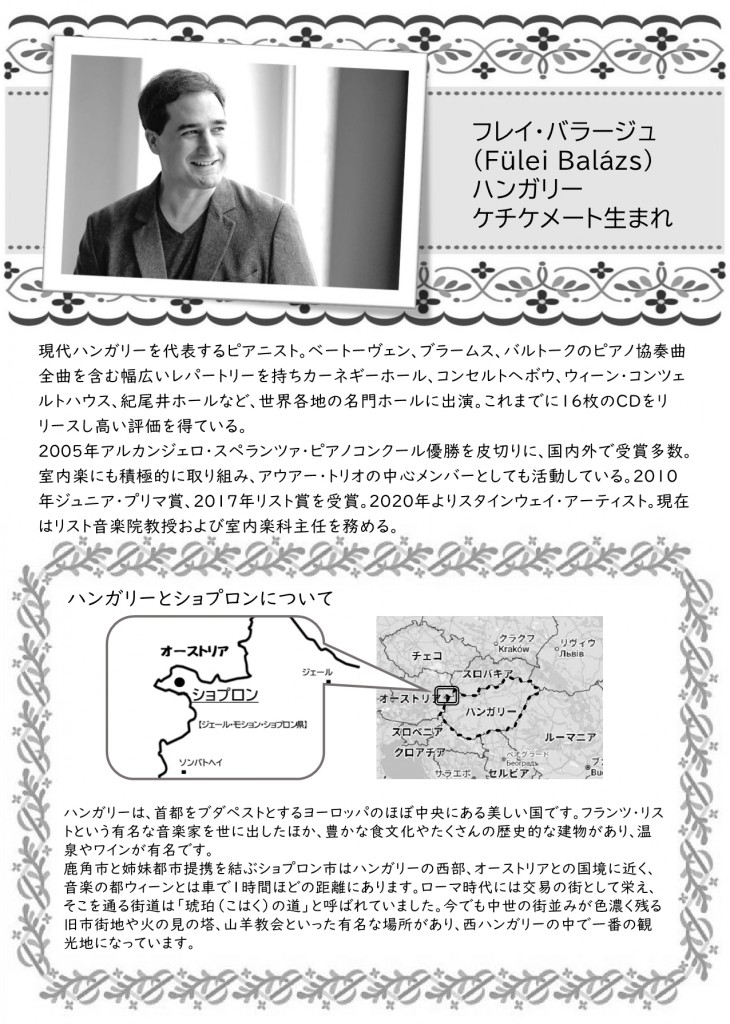 フレイ・バラージュ
（Fülei Balázs）
ハンガリー
ケチケメート生まれ
現代ハンガリーを代表するピアニスト。ベートーヴェン、ブラームス、バルトークのピアノ協奏曲
全曲を含む幅広いレパートリーを持ちカーネギーホール、コンセルトヘボウ、ウィーン・コンツェ
ルトハウス、紀尾井ホールなど、世界各地の名門ホールに出演。これまでに16枚のCDをリ
リースし高い評価を得ている。
2005年アルカンジェロ・スペランツァ・ピアノコンクール優勝を皮切りに、国内外で受賞多数。
室内楽にも積極的に取り組み、アウアー・トリオの中心メンバーとしても活動している。2010
年ジュニア・プリマ賞、2017年リスト賞を受賞。2020年よりスタインウェイ・アーティスト。現在
はリスト音楽院教授および室内楽科主任を務める。
ハンガリーとショプロンについて
オーストリア
ジェール
ショプロン
【ジェール・モション・ショプロン県】
ソンバトヘイ
クラクフ
Kraków
リヴィウ
Львів
チェコ
スロバキア
オーストリア
ハンガリー
スロベニア
クロアチア
ルーマニア
ベオグラード
Београд
サラエボ
セルビア
ハンガリーは、首都をブダペストとするヨーロッパのほぼ中央にある美しい国です。フランツ・リス
トという有名な音楽家を世に出したほか、豊かな食文化やたくさんの歴史的な建物があり、温
泉やワインが有名です。
鹿角市と姉妹都市提携を結ぶショプロン市はハンガリーの西部、オーストリアとの国境に近く、
音楽の都ウィーンとは車で1時間ほどの距離にあります。ローマ時代には交易の街として栄え、
そこを通る街道は「琥珀（こはく）の道」と呼ばれていました。今でも中世の街並みが色濃く残る
旧市街地や火の見の塔、山羊教会といった有名な場所があり、西ハンガリーの中で一番の観
光地になっています。